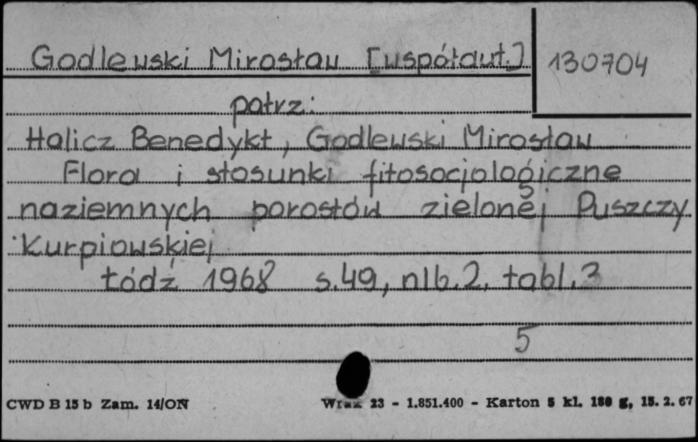 Godlewski Mirosław [współaut.]
130704
patrz:
Halicz Benedykt, Godlewski Mirosław
Flora i stosunki fitosocjologiczne
naziemnych porostów zielonej Puszczy
Kurpiowskiej
Łódź 1968 s.49, nlb.2, tabl.3
5
CWD B 15 b Zam. 14/ON
23 - 1.851.400 - Karton 5 kl. 180 g, 15. 2. 67